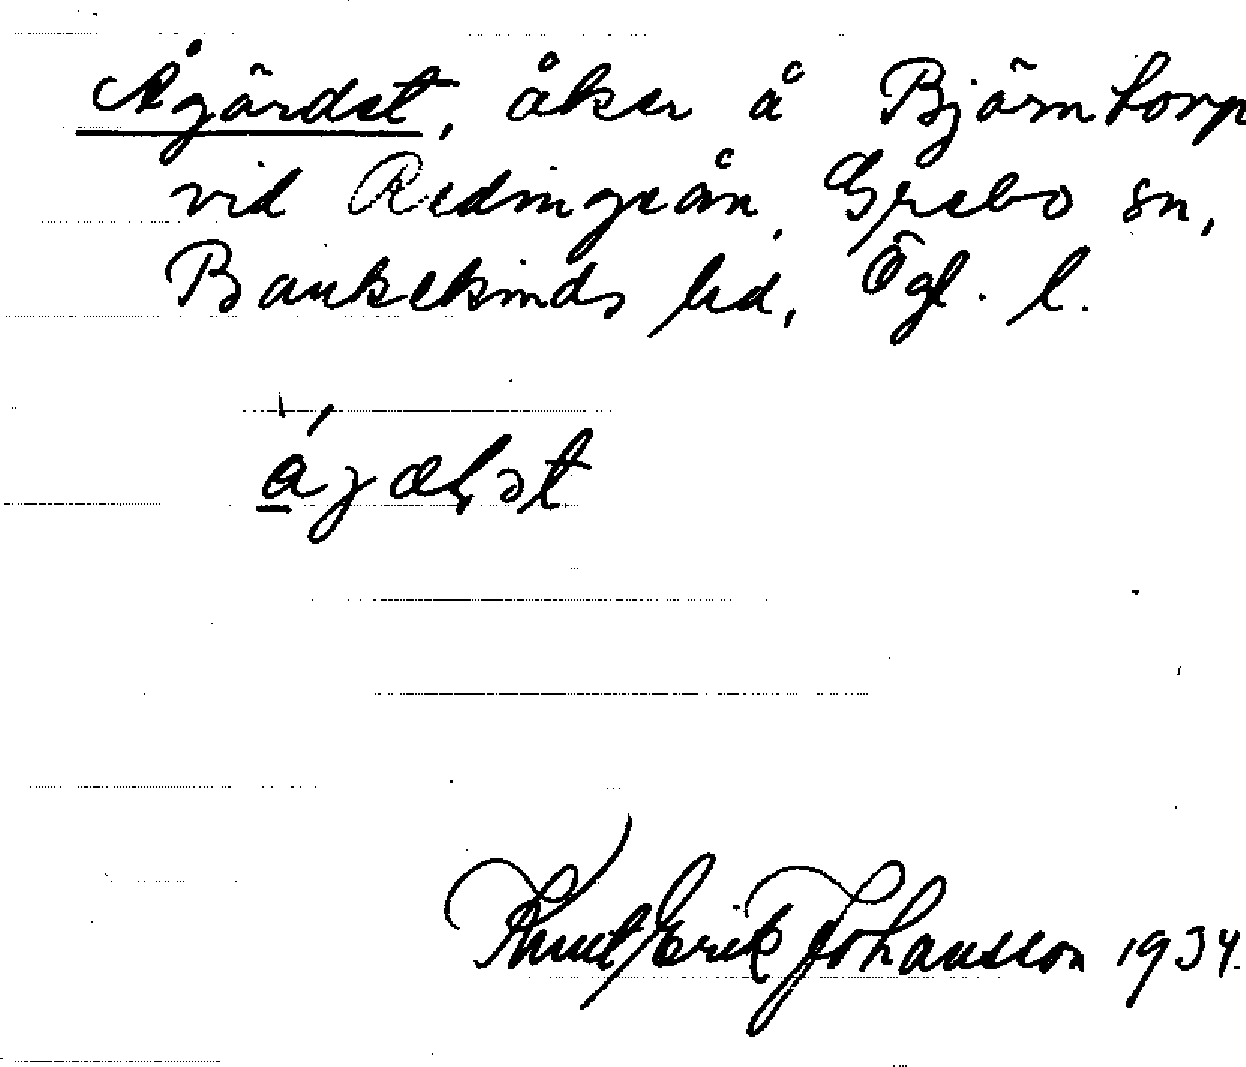 Ågärdet, åker å Björntorp
vid Redingsån, Grebo sn,
Bankekinds hd, Ögl. l.
Knut Erik Johansson 1934.